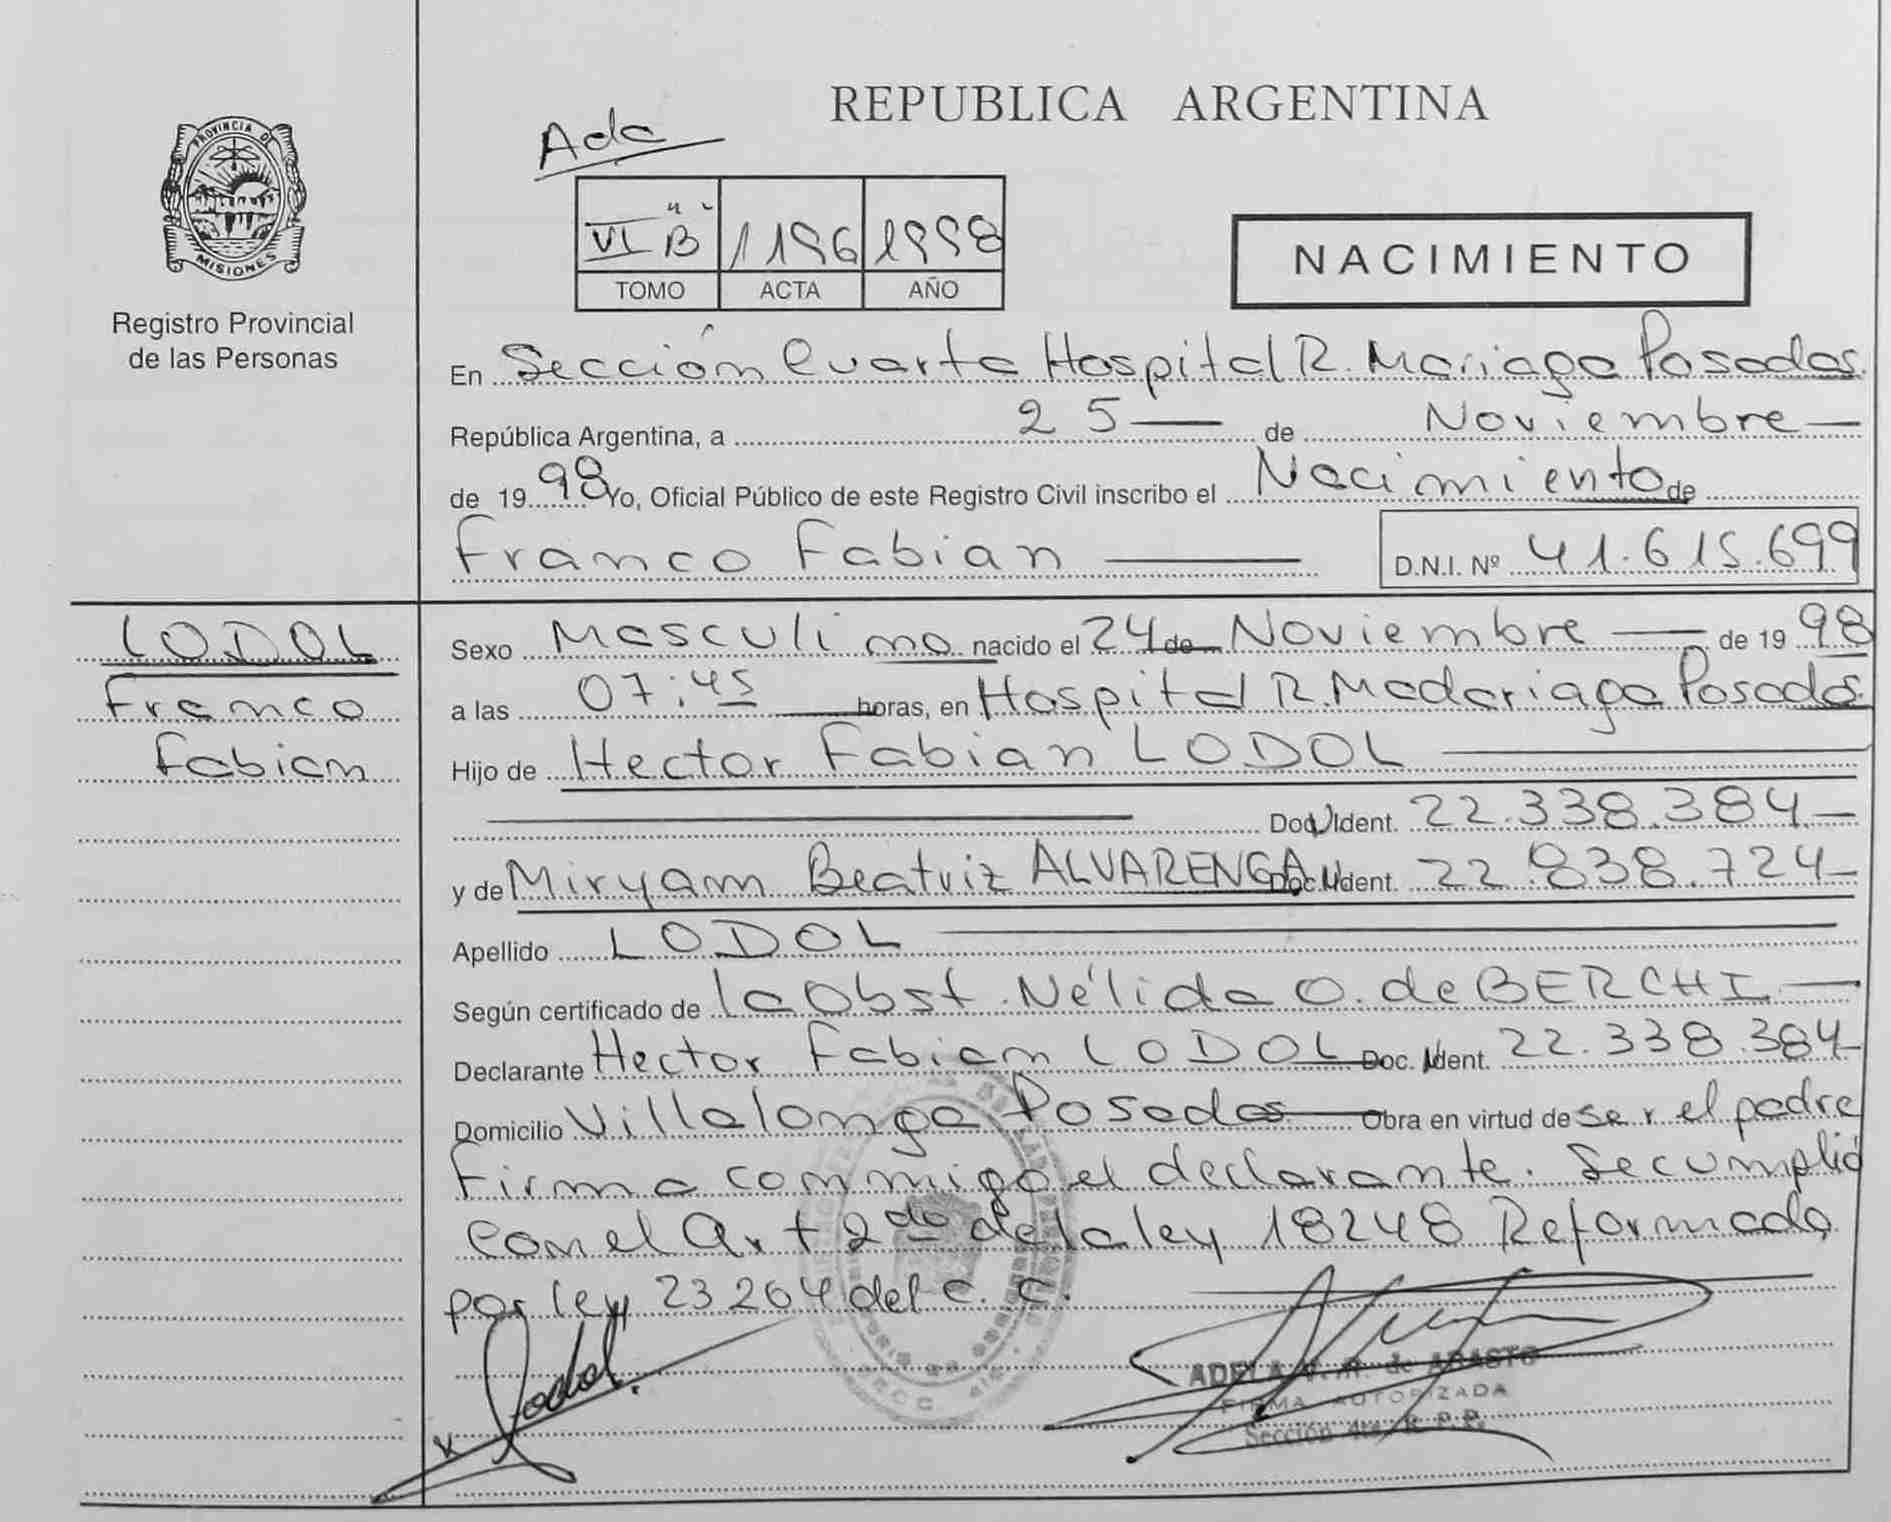 REPUBLICA ARGENTINA
PROVINCIA DE
MISIONES
Registro Provincial
de las Personas
Ada
VI "B"
1196
1998
TOMO
ACTA
AÑO
NACIMIENTO
En Sección Cuarta Hospital R. Mariaga Posadas.
República Argentina, a 25 — de Noviembre —
de 19 98 Yo, Oficial Público de este Registro Civil inscribo el Nacimiento de
Franco Fabian —
D.N.I. Nº 41.615.699
LODOL
Franco
Fabian
Sexo Masculino nacido el 24 de Noviembre — de 19 98
a las 07:45 horas, en Hospital R. Madariaga Posadas
Hijo de Hector Fabian LODOL —
— Doc. Ident. 22.338.384.—
y de Miryam Beatriz ALVARENGA Doc. Ident. 22.838.724—
Apellido LODOL —
Según certificado de la Obst. Nélida O. de BERCHI —
Declarante Hector Fabian LODOL Doc. Ident. 22.338.384—
Domicilio Villalonga Posadas — Obra en virtud de ser el padre
Firma conmigo el declarante. Se cumplió
con el Art 2do de la ley 18248 Reformada
por ley 23264 del C. C.
Lodol
ADELA de ABASTO
FIRMA AUTORIZADA
Sección 4ta. R. P. P.